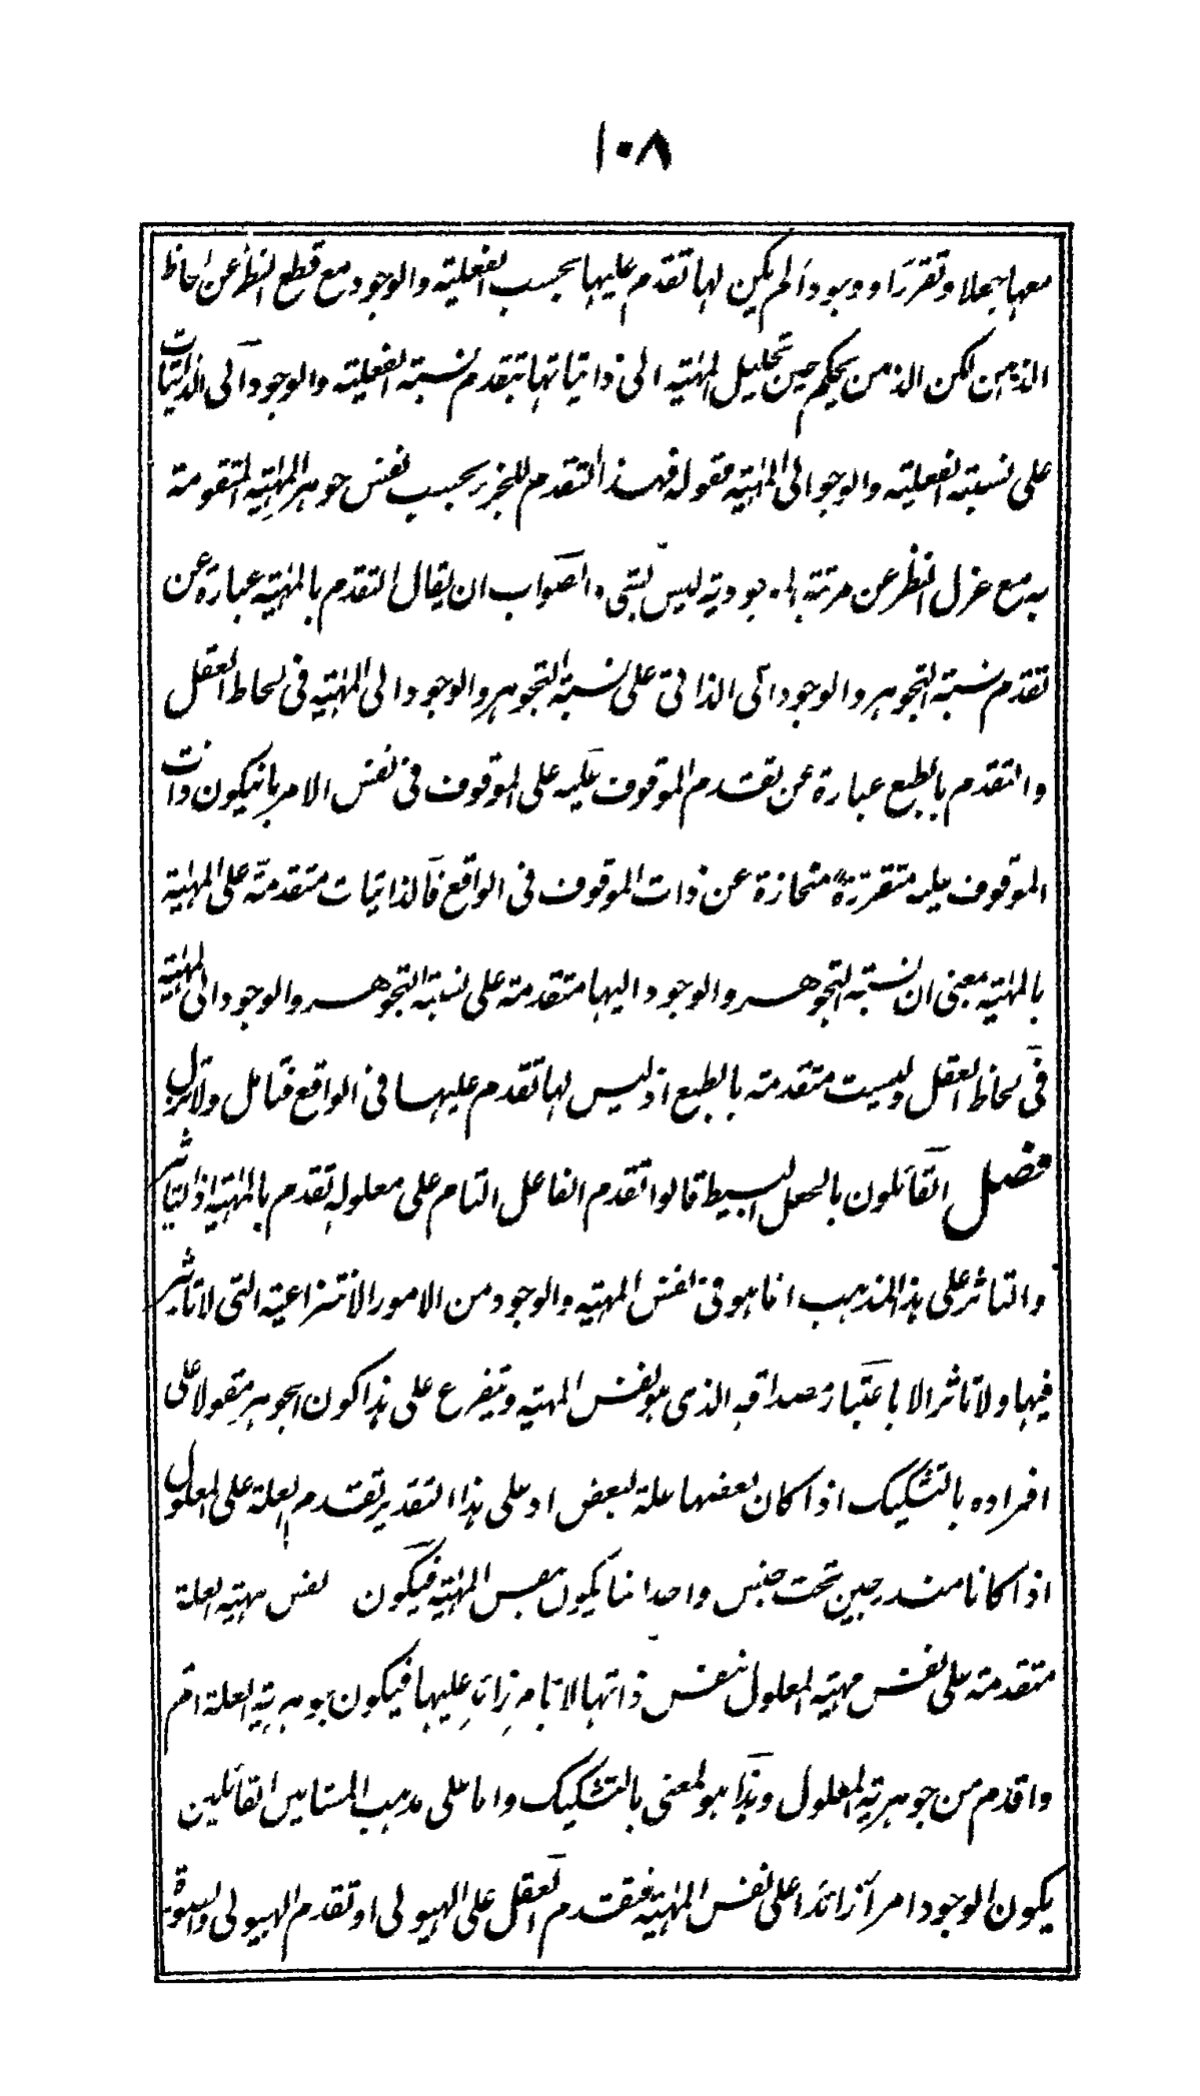 ١٠٨
معها جعلا وتقررا ووجودا لم يكن لها تقدم عليها بحسب الفعلية والوجود مع قطع النظر عن لحاظ
الذهن لكن الذهن يحكم حين تحليل المهية الى ذاتياتها بتقدم نسبة الفعلية والوجود الى الذاتيات
على نسبة الفعلية والوجو الى المهية فقوله فهذا التقدم للجزء بحسب نفس جوهر المهية المتقومة
به مع عزل النظر عن مرتبة الموجودية ليس بشى والصواب ان يقال التقدم بالمهية عبارة عن
تقدم نسبة التجوهر والوجود الى الذاتى على نسبة التجوهر والوجود الى المهية فى لحاظ العقل
والتقدم بالطبع عبارة عن تقدم الموقوف عليه على الموقوف فى نفس الامر بان يكون ذات
الموقوف عليه متقررة منحازة عن ذات الموقوف فى الواقع فالذاتيات متقدمة على المهية
بالمهية بمعنى ان نسبة التجوهر والوجود اليها متقدمة على نسبة التجوهر والوجود الى المهية
فى لحاظ العقل وليست متقدمة بالطبع اذ ليس لها تقدم عليها فى الواقع فتامل ولا تزل
فصل القائلون بالجعل البسيط قالوا تقدم الفاعل التام على معلوله تقدم بالمهية اذ التاثير
والتاثر على هذا المذهب انما هو فى نفس المهية والوجود من الامور الانتزاعية التى لا تاثير
فيها ولا تاثر الا باعتبار مصداقه الذى هو نفس المهية ويتفرع على هذا كون الجوهر مقولا على
افراده بالتشكيك اذا كان بعضها علة لبعض اذ على هذا التقدير تقدم العلة على المعلول
اذا كانا مندرجين تحت جنس واحد انما يكون بنفس المهية فيكون نفس مهية العلة
متقدمة على نفس مهية المعلول بنفس ذاتها لا بامر زائد عليها فيكون جوهرية العلة اتم
واقدم من جوهرية المعلول وهذا هو المعنى بالتشكيك واما على مذهب المشائين القائلين
بكون الوجود امرا زائدا على نفس المهية فتقدم العقل على الهيولى او تقدم الهيولى والصورة